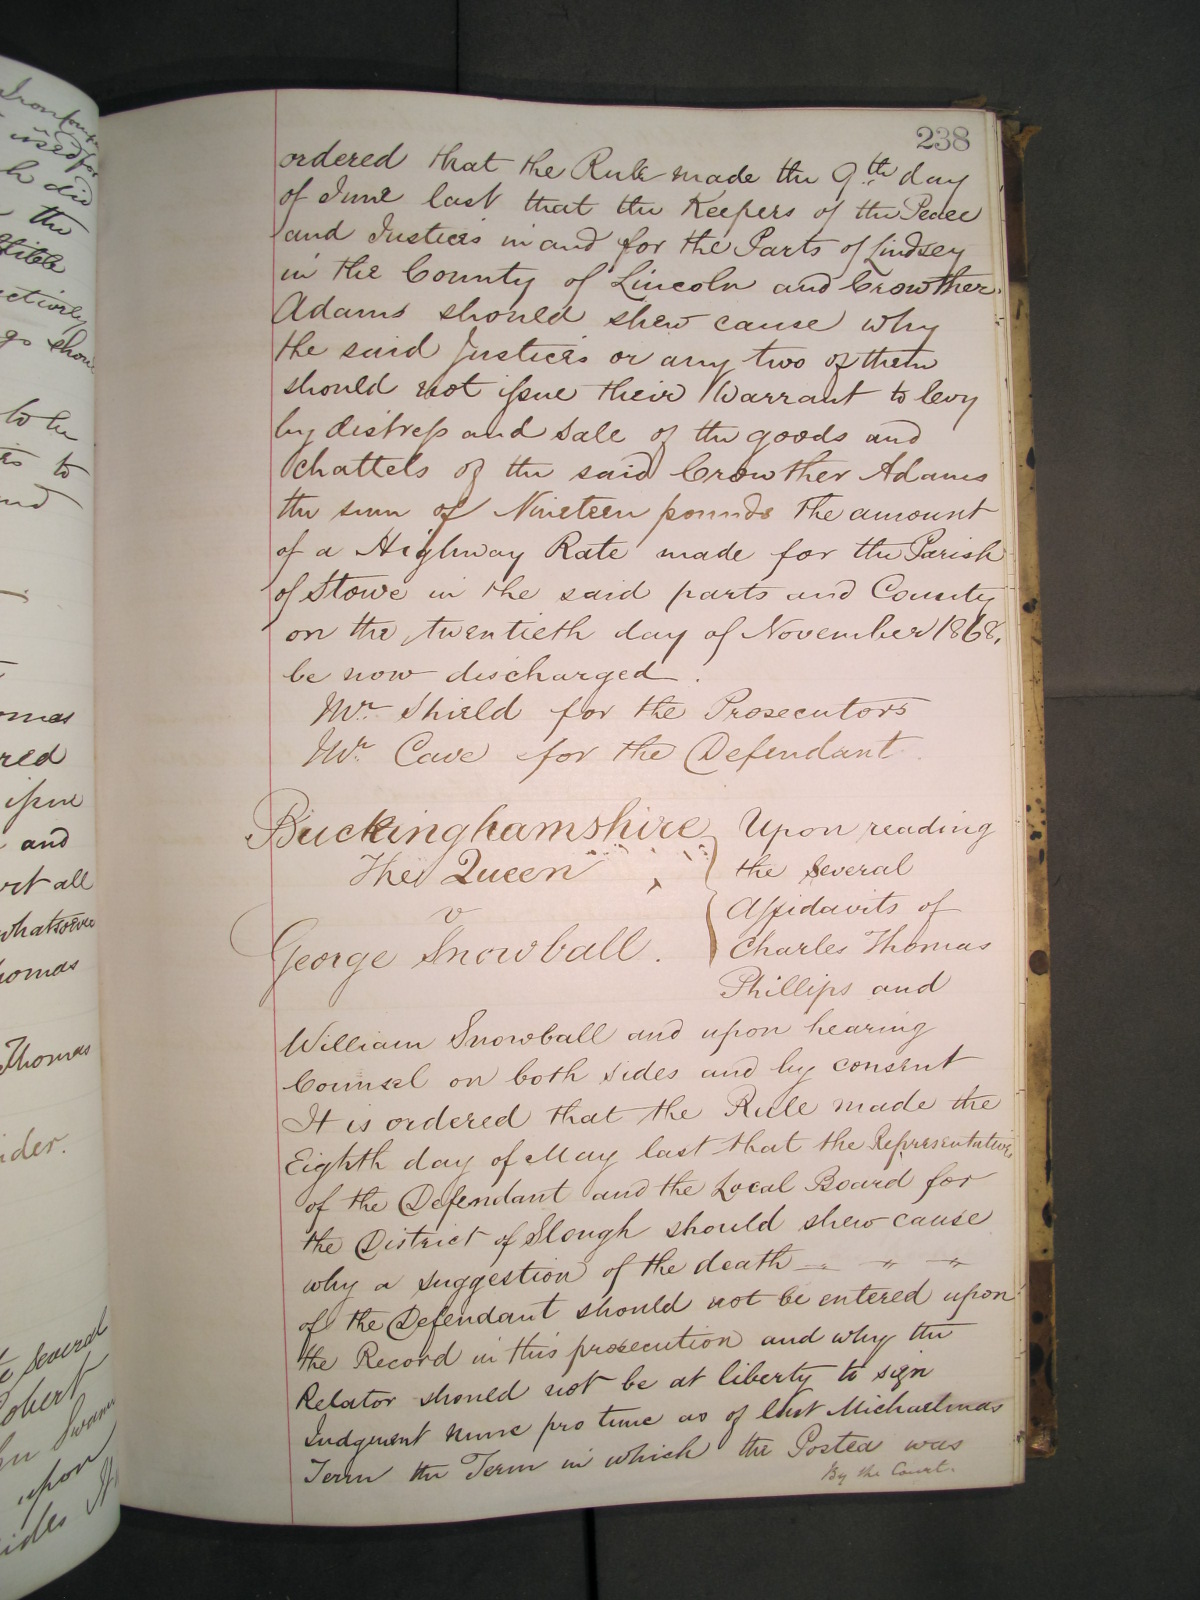 238
ordered that the Rule made the 9th day
of June last that the Keepers of the Peace
and Justices in and for the Parts of Lindsey
in the County of Lincoln and Crowther
Adams should shew cause why
the said Justices or any two of them
should not issue their Warrant to levy
by distress and sale of the goods and
chattels of the said Crowther Adams
the sum of Nineteen pounds the amount
of a Highway Rate made for the Parish
of Stowe in the said parts and County
on the twentieth day of November 1868,
be now discharged.
Mr. Shield for the Prosecutors
Mr. Cave for the Defendant.
Buckinghamshire
The Queen
v
George Snowball.
Upon reading
the several
Affidavits of
Charles Thomas
Phillips and
William Snowball and upon hearing
Counsel on both sides and by consent
It is ordered that the Rule made the
Eighth day of May last that the Representatives
of the Defendant and the Local Board for
the District of Slough should shew cause
why a suggestion of the death
of the Defendant should not be entered upon
the Record in this prosecution and why the
Relator should not be at liberty to sign
Judgment nunc pro tunc as of last Michaelmas
Term the Term in which the Postea was
By the Court.
h did
the
go shou
to be
to
omas
red
issue
and
all
whatsoever
homas
Thomas
ider.
several
upon